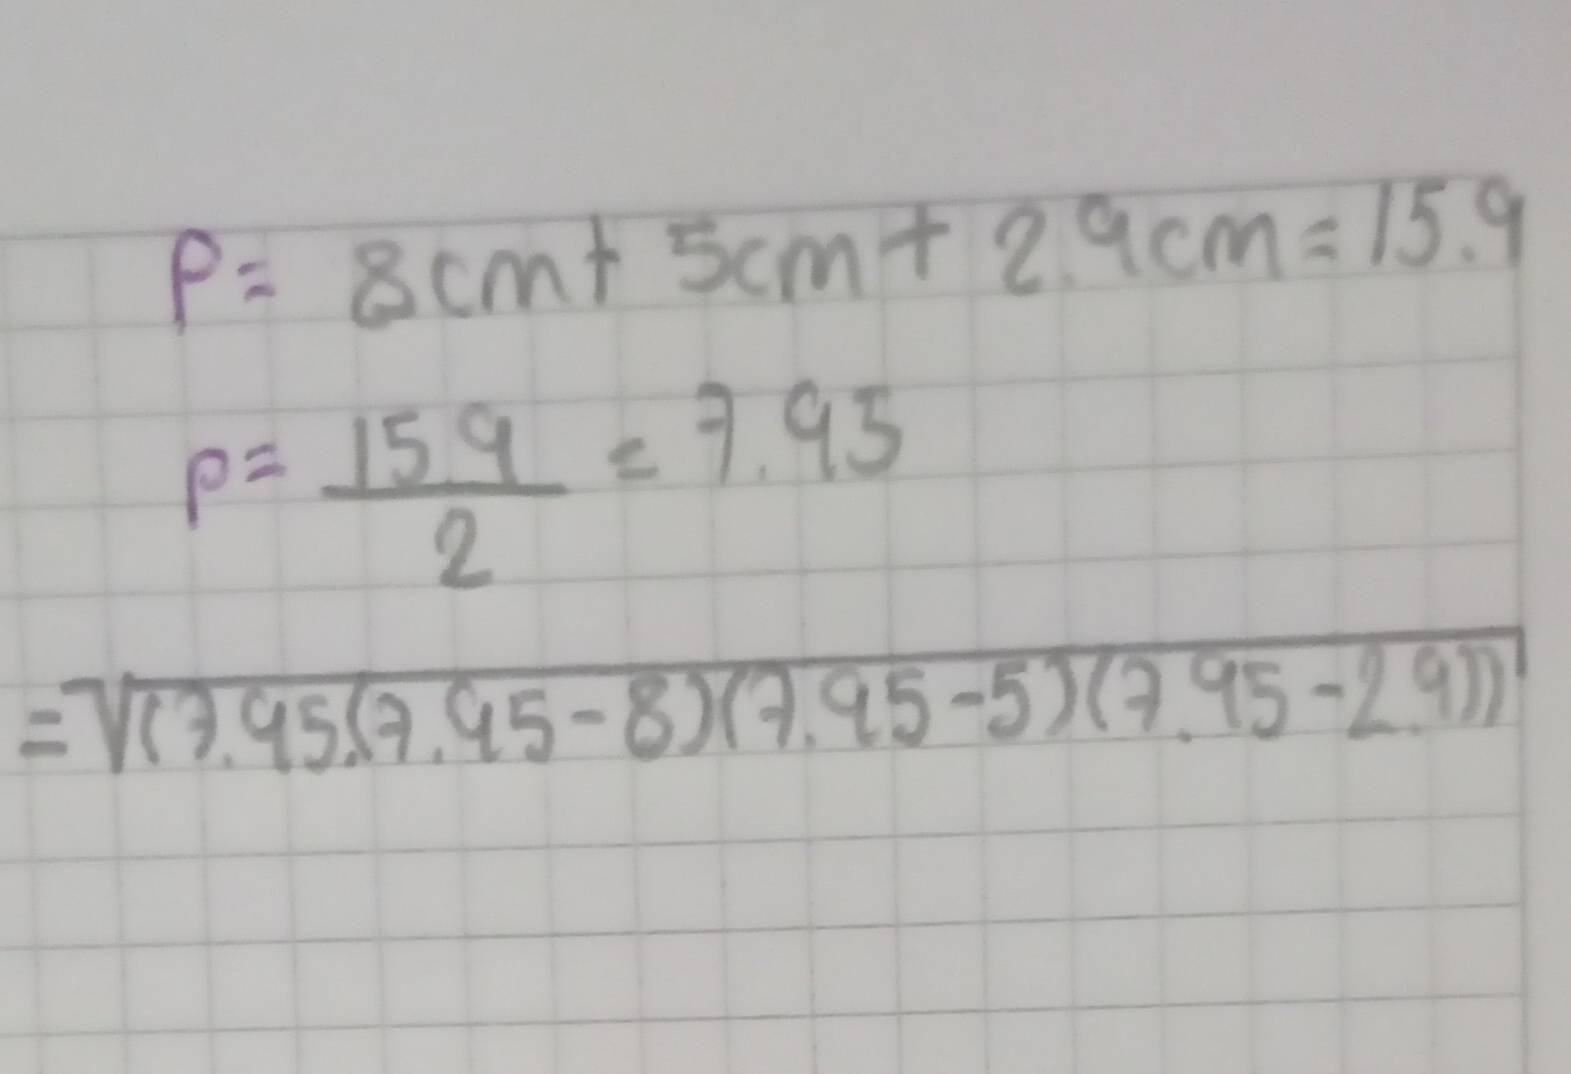 P= 8cm+ 5cm+ 2.9cm=15.9
p= 15.9/2 = 7.95
=√(7.95.(7.95-8)(7.95-5)(7.95-2.9))